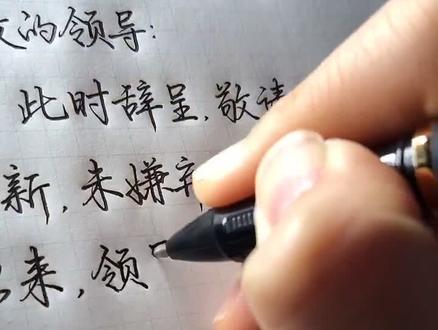 的领导:
此时辞呈,敬请
新,未嫌弃
来,领